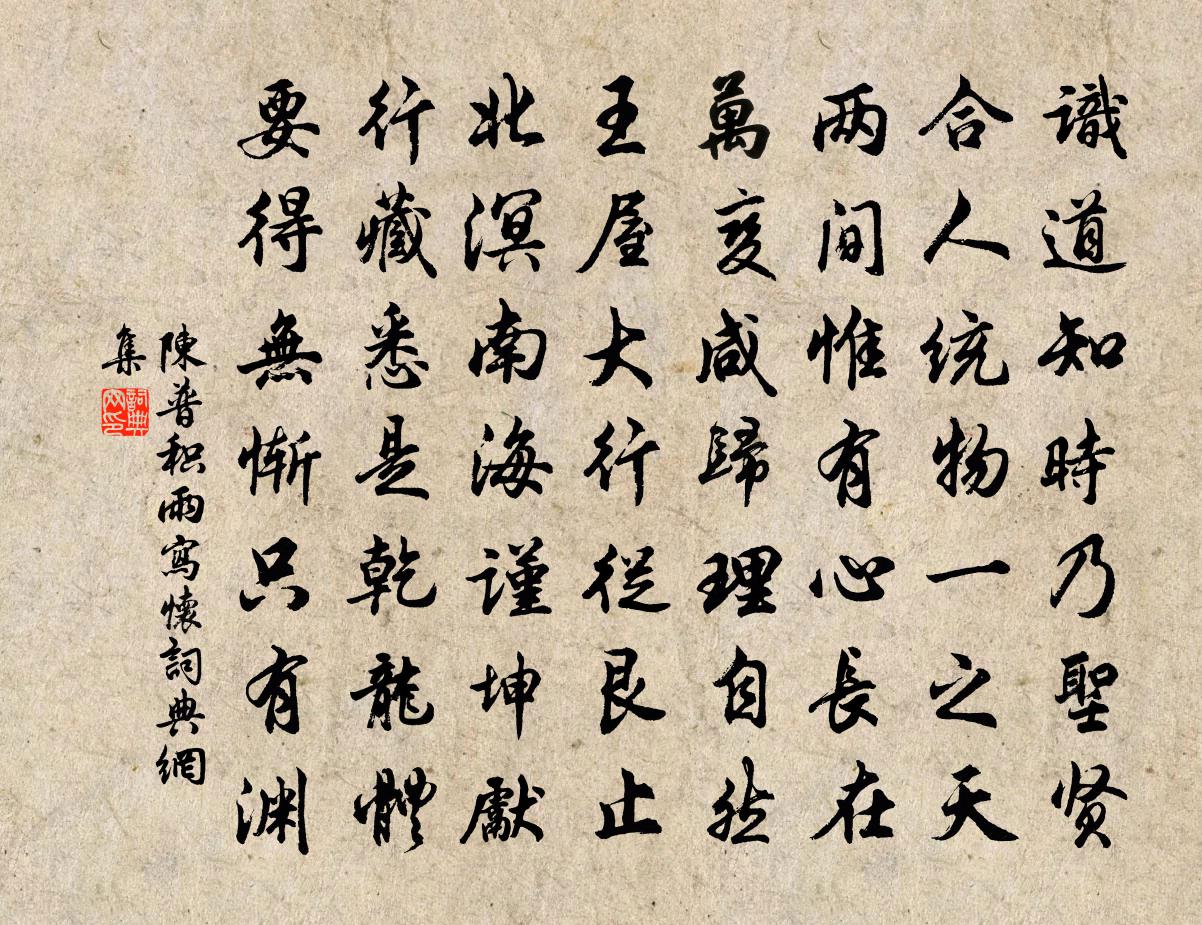 識道知時乃聖贤
合人统物一之天
两间惟有心長在
萬变咸歸理自然
王屋大行從艮止
北溟南海謹坤獻
行藏悉是乾龍體
要得無慚只有渊
陳普积雨寫懷詞典網
集
詞典
网印